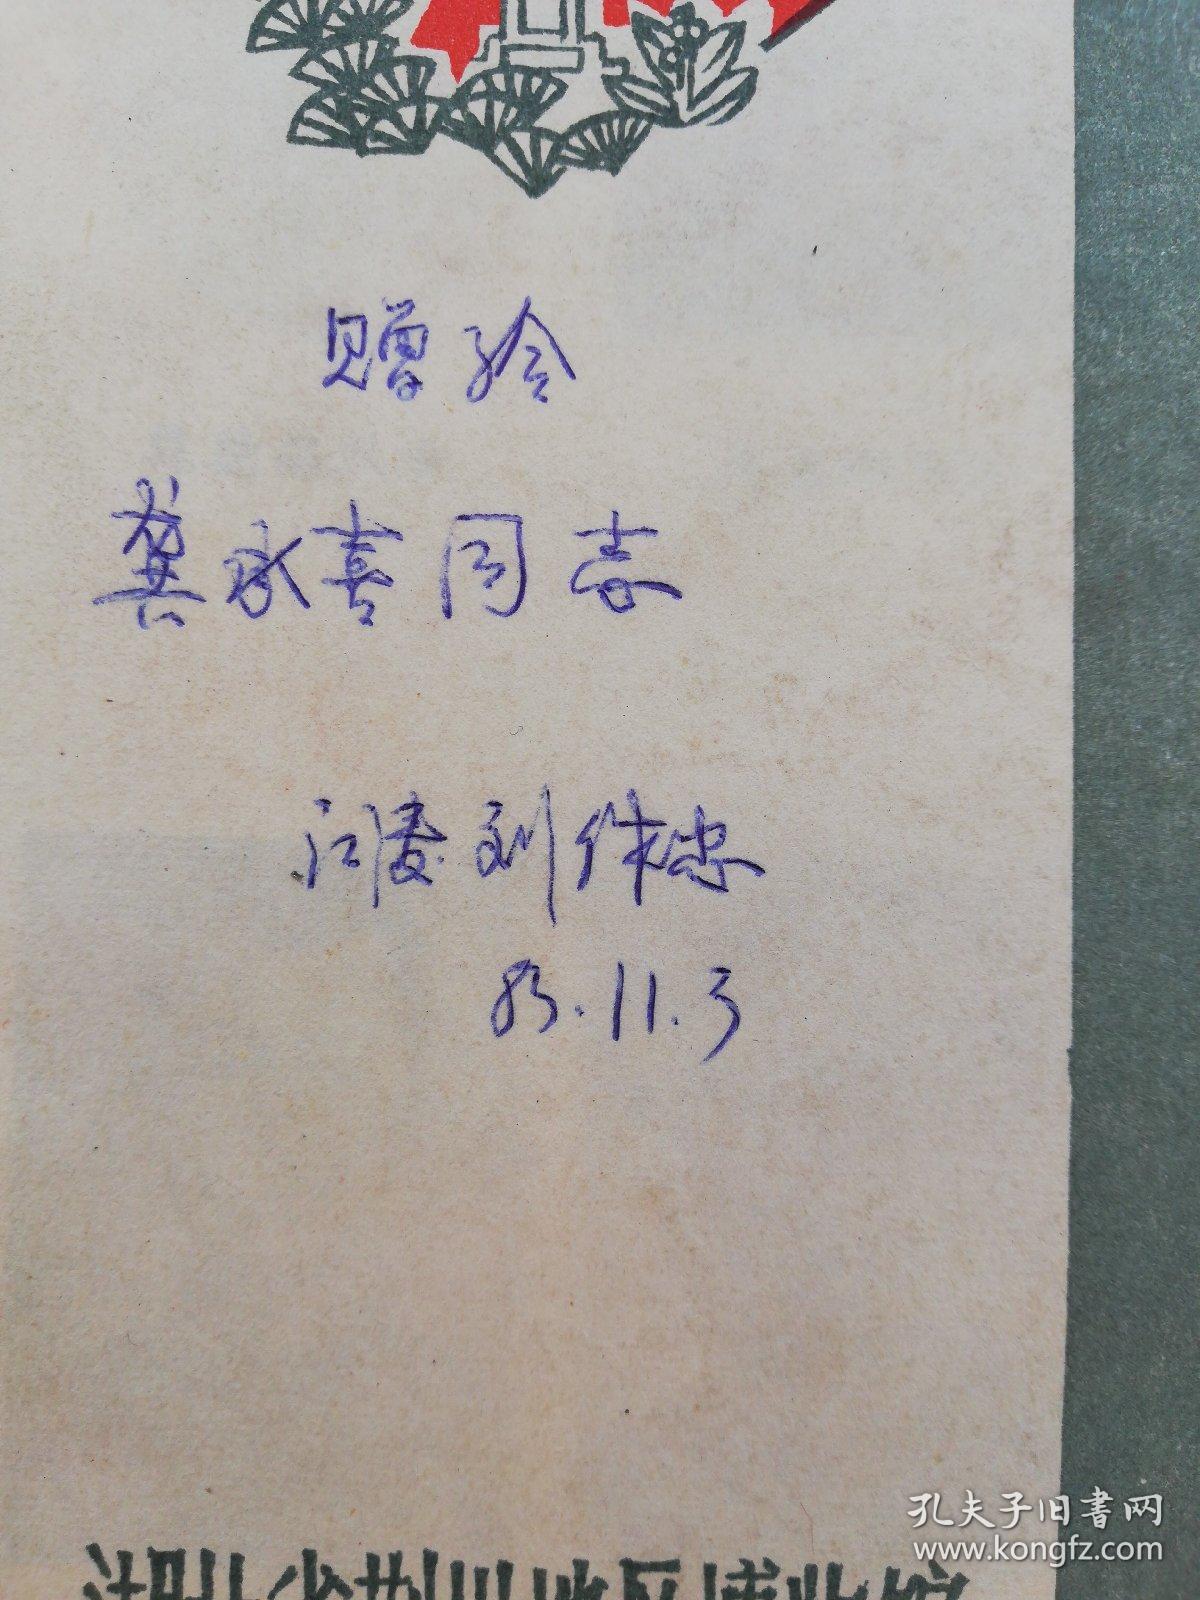 赠给
龚永喜同志
江陵刘伟忠
83.11.3
孔夫子旧书网
www.kongfz.com
湖北省荆州地区博物馆